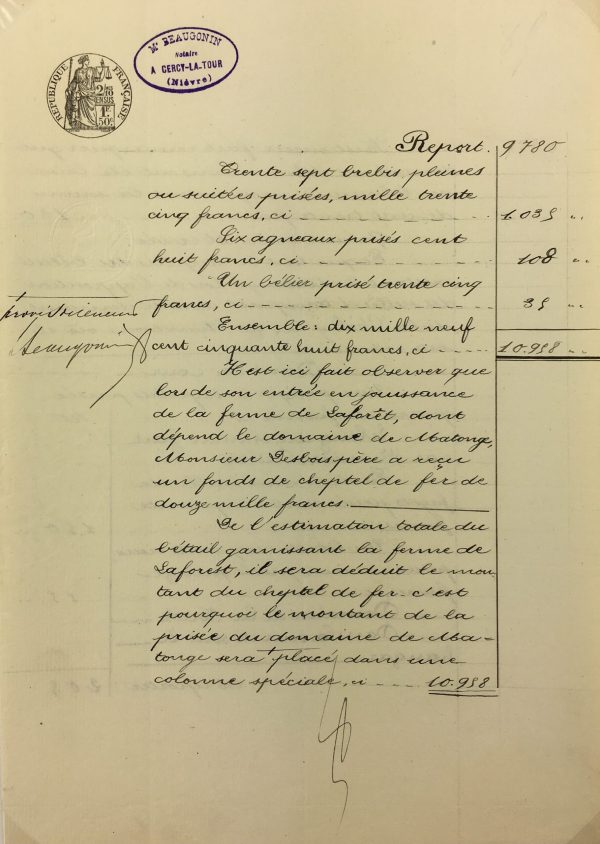 Mᵉ BEAUGONIN
Notaire
A CERCY-LA-TOUR
(Nièvre)
RÉPUBLIQUE FRANÇAISE
2/10
EN SUS
1F
50c
Report. 9780
Trente sept brebis pleines
ou suitées prisées, mille trente
cinq francs, ci 1.035 "
Six agneaux prisés cent
huit francs, ci 108 "
Un bélier prisé trente cinq
francs, ci 35 "
Ensemble: dix mille neuf
cent cinquante huit francs, ci 10.958 "
Beaugonin
Il est ici fait observer que
lors de son entrée en jouissance
de la ferme de Laforêt, dont
dépend le domaine de Matonge,
Monsieur Desbois père a reçu
un fonds de cheptel de fer de
douze mille francs.
De l'estimation totale du
bétail garnissant la ferme de
Laforest, il sera déduit le mon-
tant du cheptel de fer. c'est
pourquoi le montant de la
prisée du domaine de Ma-
tonge sera placé dans une
colonne spéciale, ci 10.958